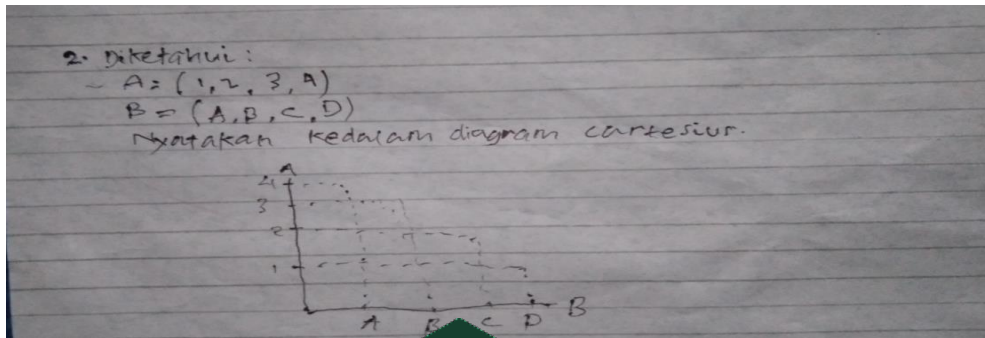 2. Diketahui :
- A = (1, 2, 3, 4)
B = (A, B, C, D)
Nyatakan kedalam diagram cartesius.
A
4
3
2
1
A B C D B